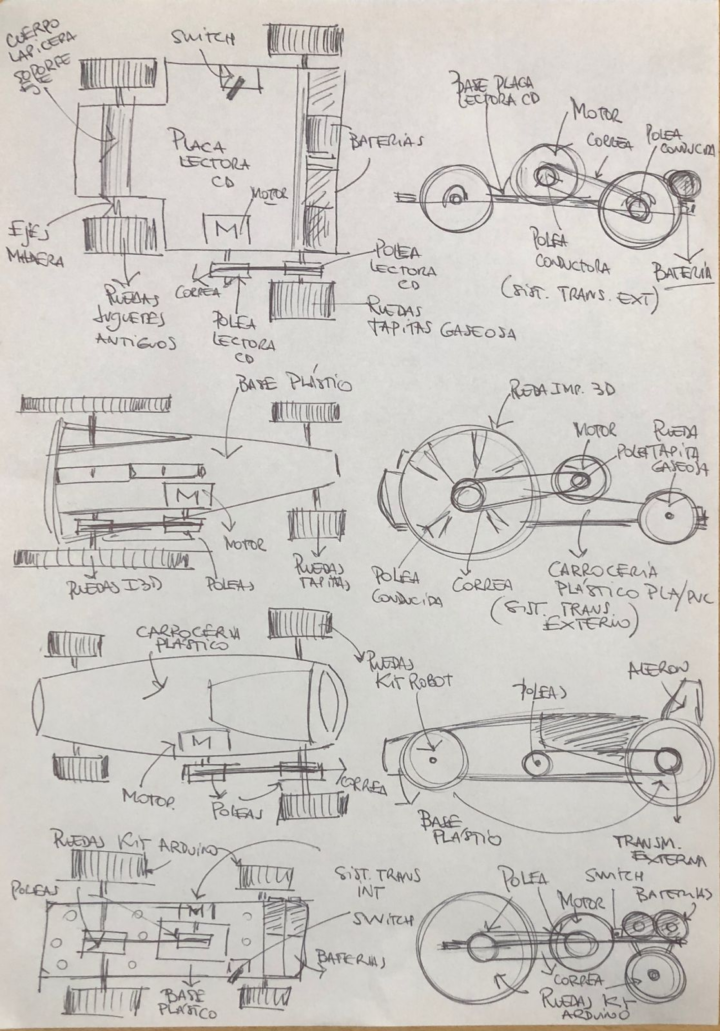 CUERPO
LAPICERA
SOPORTE
DE
SWITCH
PLACA
LECTORA
CD
BATERÍAS
MOTOR
M
EJES
MADERA
RUEDAS
JUGUETES
ANTIGUOS
CORREA
POLEA
LECTORA
CD
POLEA
LECTORA
CD
RUEDAS
TAPITAS GASEOSA
BASE PLACA
LECTORA CD
MOTOR
CORREA
POLEA
CONDUCIDA
POLEA
CONDUCTORA
(SIST. TRANS. EXT)
BATERÍA
BASE PLÁSTICO
M
MOTOR
RUEDAS I3D
POLEAS
RUEDAS
TAPITAS
RUEDA IMP. 3D
MOTOR
POLEA
RUEDA
TAPITA
GASEOSA
POLEA
CONDUCIDA
CORREA
CARROCERÍA
PLÁSTICO PLA/PVC
(SIST. TRANS.
EXTERNO)
CARROCERIA
PLÁSTICO
RUEDAS
KIT ROBOT
M
MOTOR
POLEAS
CORREA
POLEAS
ALERON
BASE
PLASTIO
TRANSM.
EXTERNA
RUEDAS KIT ARDUINO
POLEAS
M
SIST. TRANS
INT
SWITCH
BATERIAS
BASE
PLÁSTICO
POLEA
MOTOR
SWITCH
BATERIAS
CORREA
RUEDAS KIT
ARDUINO